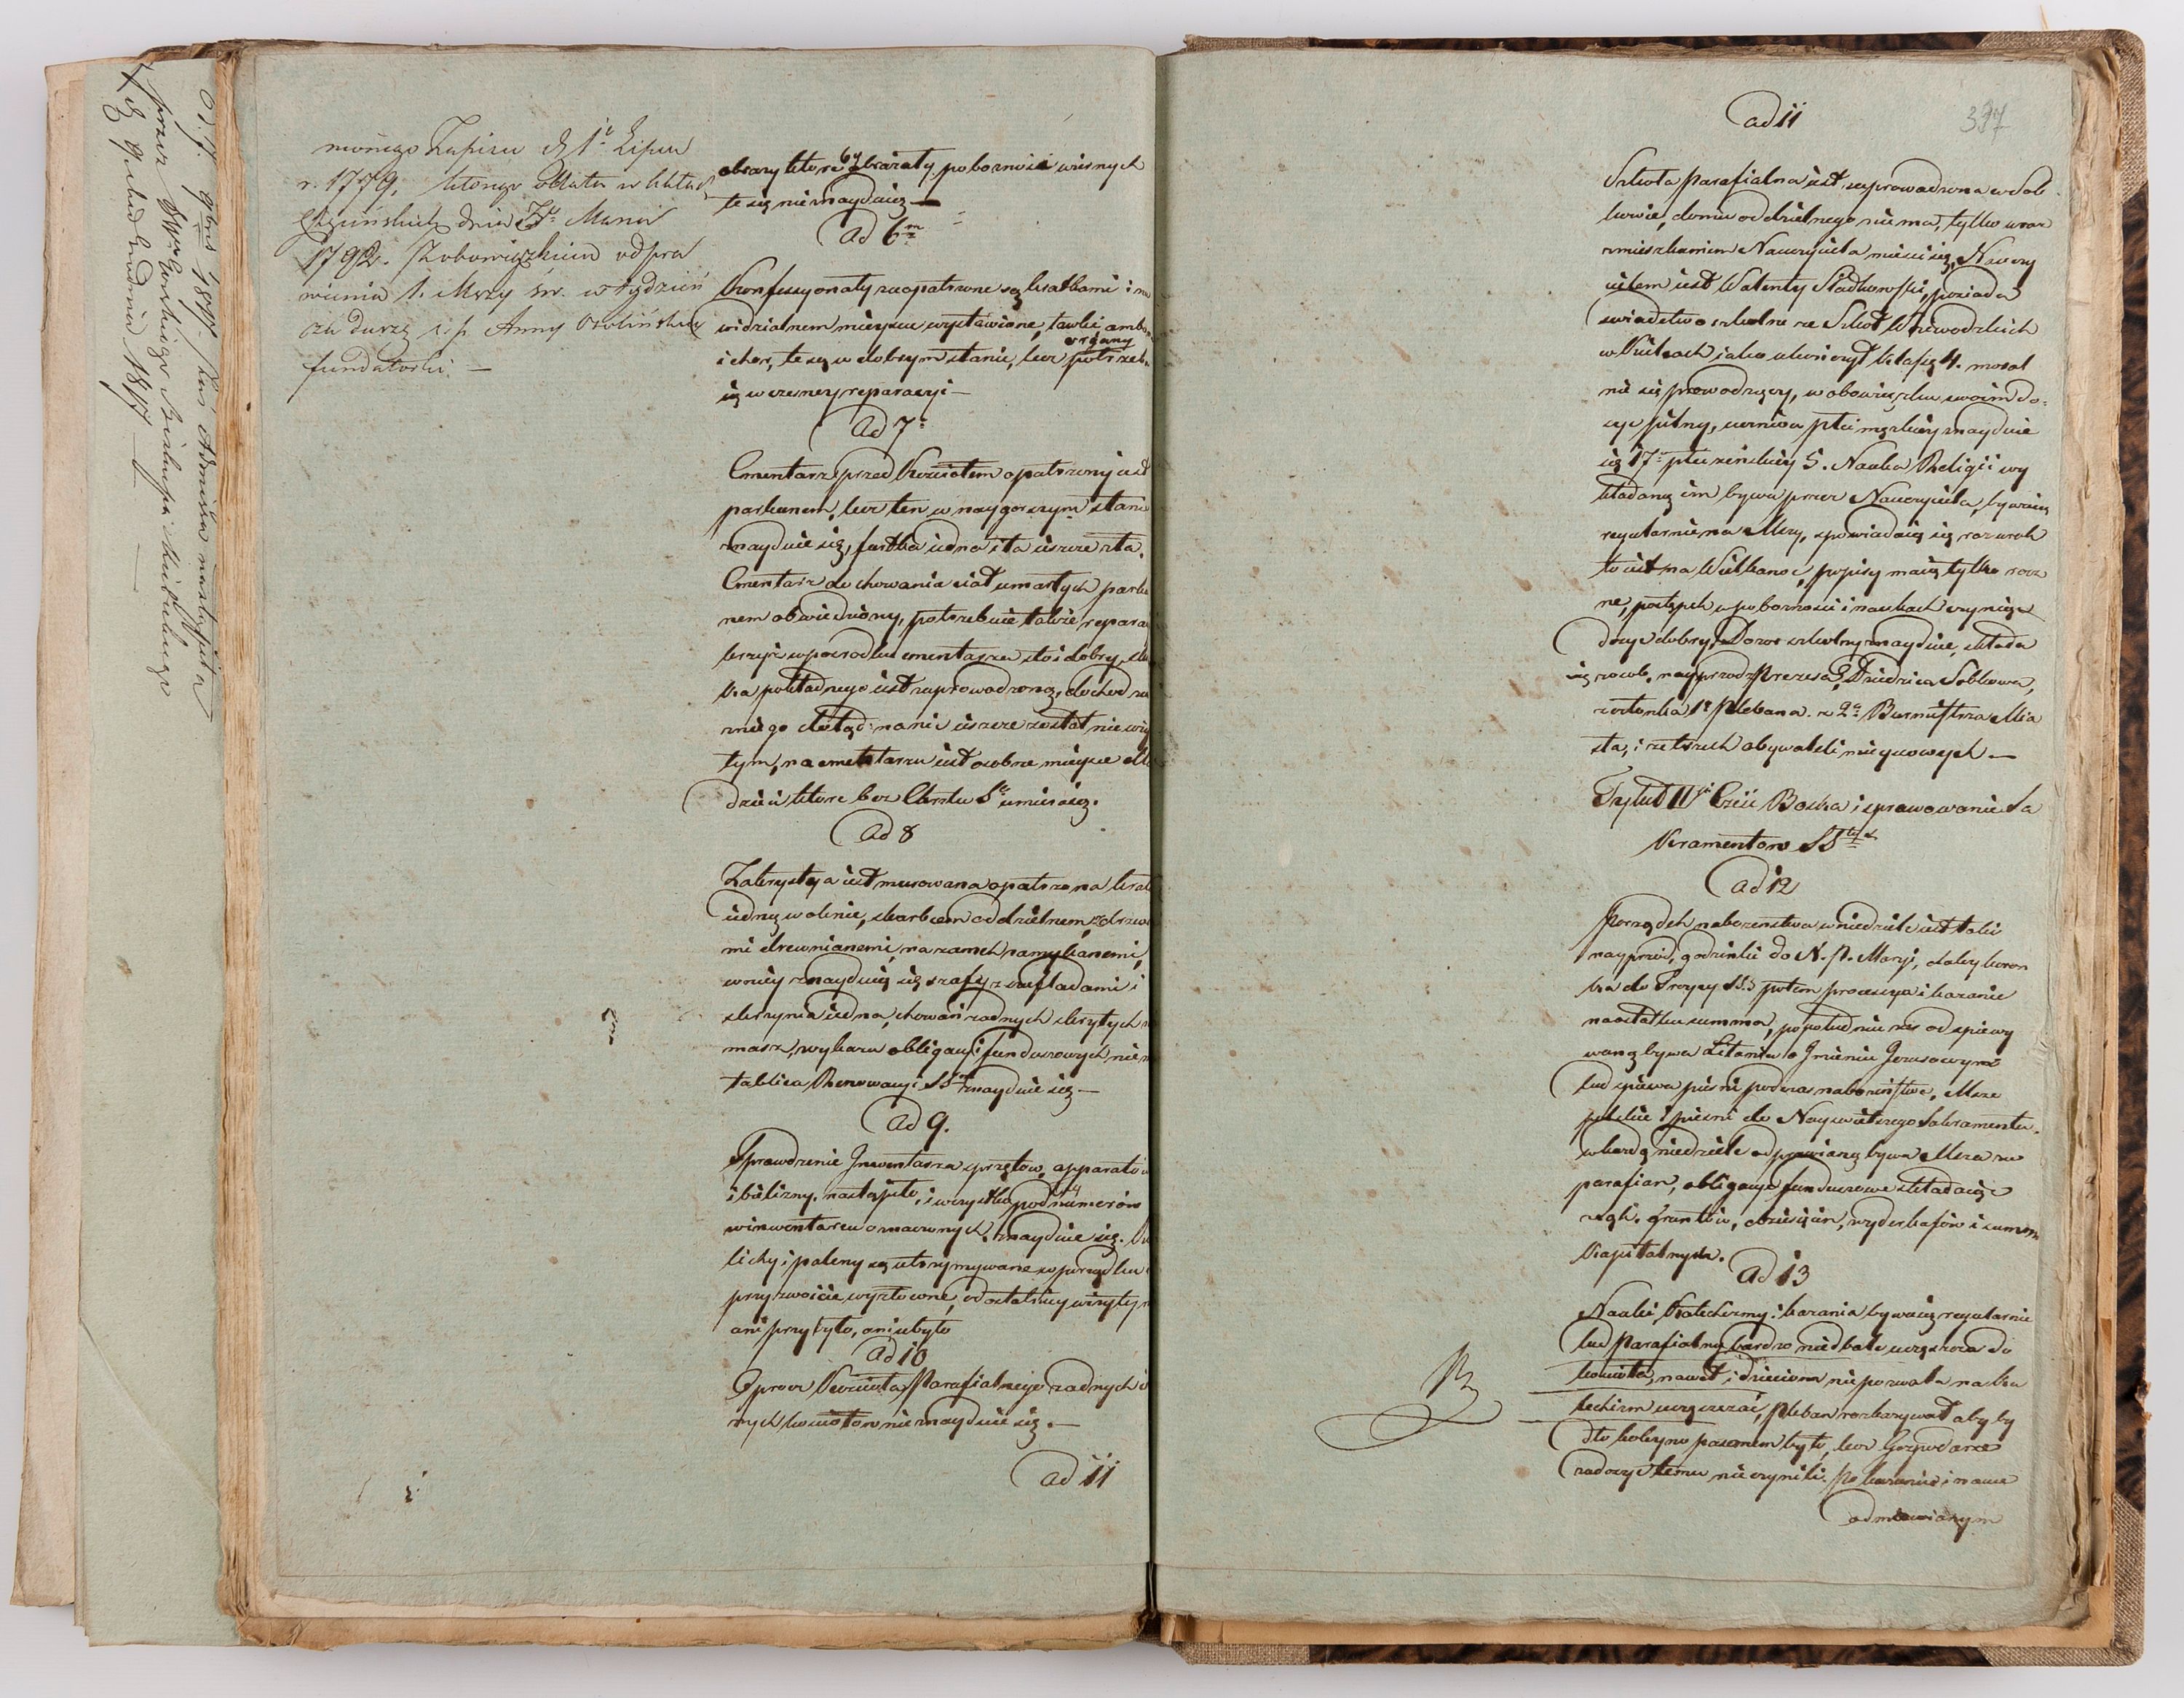 mionego Zapisu d. 1º Lipca
r. 1779, którego oblata w Aktach
dnia
1792. Zobowiązkiem odpra
wienia 1. Mszy św. w tydzień
za duszę ś. p. Anny Ossolińskiey
fundatorki. —
obrazy które by obrażały pobożność wiernych
te się nieznayduią —
Ad 6m
Konfessyonały zaopatrzone są kratkami i na
widzialnem mieyscu wystawione, ławki, ambo
organy
i chor, te są w dobrym stanie, lecz potrzeb
ią wczesney reparacyi —
Ad 7
Cmentarz przed Kościołem opatrzony iest
parkanem, lecz ten w naygorszym stanie
znayduie się, furtka iedna i ta ieszcze zła.
Cmentarz do chowania ciał umarłych parka
nem obwiedziony, potrzebuie także repara
krzyż w pośrodku cmentarza stoi dobry,
ka pokładnego iest zaprowadzona, dochod za
niego dotąd na nic ieszcze został nieuży
tym, na cmetatarzu iest osobne mieysce dla
dzieci które bez Chrztu S. umieraią.
Ad 8
Zakrystya iest murowana opatrzona krat
iedną w oknie, skarbcem oddzielnem, z drzwia
mi drewnianemi, na zamek zamykanemi,
w niey znayduią się szafy z szufladami i
skrzynia iedna, chowań żadnych skrytych
masz, wykazu obligacyi funduszowych niem
tablica Renowacyi SS znayduie się —
Ad 9.
Sprawdzenie Inwentarza sprzętow, apparatów
i bielizny, nastąpiło, i wszystko podług numerów
w inwentarzu oznaczonych, znayduie się. Kie
lichy i pateny są utrzymywane w porządku
przyzwoicie wyzłocone, od ostatniey wizyty n
ani przybyło, ani ubyło
Ad 10
Oprocz Kościoła Parafialnego żadnych i
nych kosciołow nieznayduie się. —
Ad 11
Ad 11
397
Szkoła parafialna iest zaprowadzona w Sob
kowie, domu oddzielnego nie ma, tylko wraz
zmieszkaniem Nauczyciela mieści się, Nauczy
cielem iest Walenty Sladkowski, posiada
swiadectwo szkolne ze Szkół Wojewodzkich
w Kielcach iako ukończył klassę 4. moral
nie się prowadzący, w obowiązku swoim do-
syć pilny, uczniów płci męzkiey znayduie
się 17. płci żeńskiey 5. Nauka Religii wy
kładaną im bywa przez Nauczyciela, bywaią
regularnie na Mszy, spowiadaią się raz w rok
to iest na Wielkanoc, popisy maią tylko rocz
ne, postępek w pobożności i naukach czynią
dosyć dobry, Dozor szkolny znayduie, składa
się z osob, nayprzod Prezesa, Dziedzica Sobkowa,
członka 1º Plebana. z 2º Burmistrza Mia
sta, i z trzech obywateli mieyscowych. —
Tytuł II Część Boska i sprawowanie Sa
kramentow SS
Ad 12
Porządek nabożenstwa w niedziele iest taki
nayprzod, godzinki do N. P. Maryi, daley koron
ka do Troycy SS. potem processya i kazanie
naostatku summa, popołudniu zaś odspiewy
waną bywa Litania o Imieniu Jezusowym
lud spiewa piesni podczas nabożeństwa, Msze
polskie i piesni do Nayswiętszego Sakramentu.
w każdą niedziele odprawianą bywa Msza za
parafian, obligacye funduszowe składaią się
z gruntów, dziesięcin, wyderkafów i summ
Kapitalnych.
Ad 13
Nauki, Katechizmy i kazania bywaią regularnie
lud Parafialny bardzo niedbale uczęszcza do
kościoła, nawet i dzieciom niepozwala na ka
techizm uczęszczać, Pleban rozkazywał aby by
dło koleyno pasanem było, lecz Gospodarze
zadosyć temu nie czynili. Po kazaniu i nauce
odmawianym